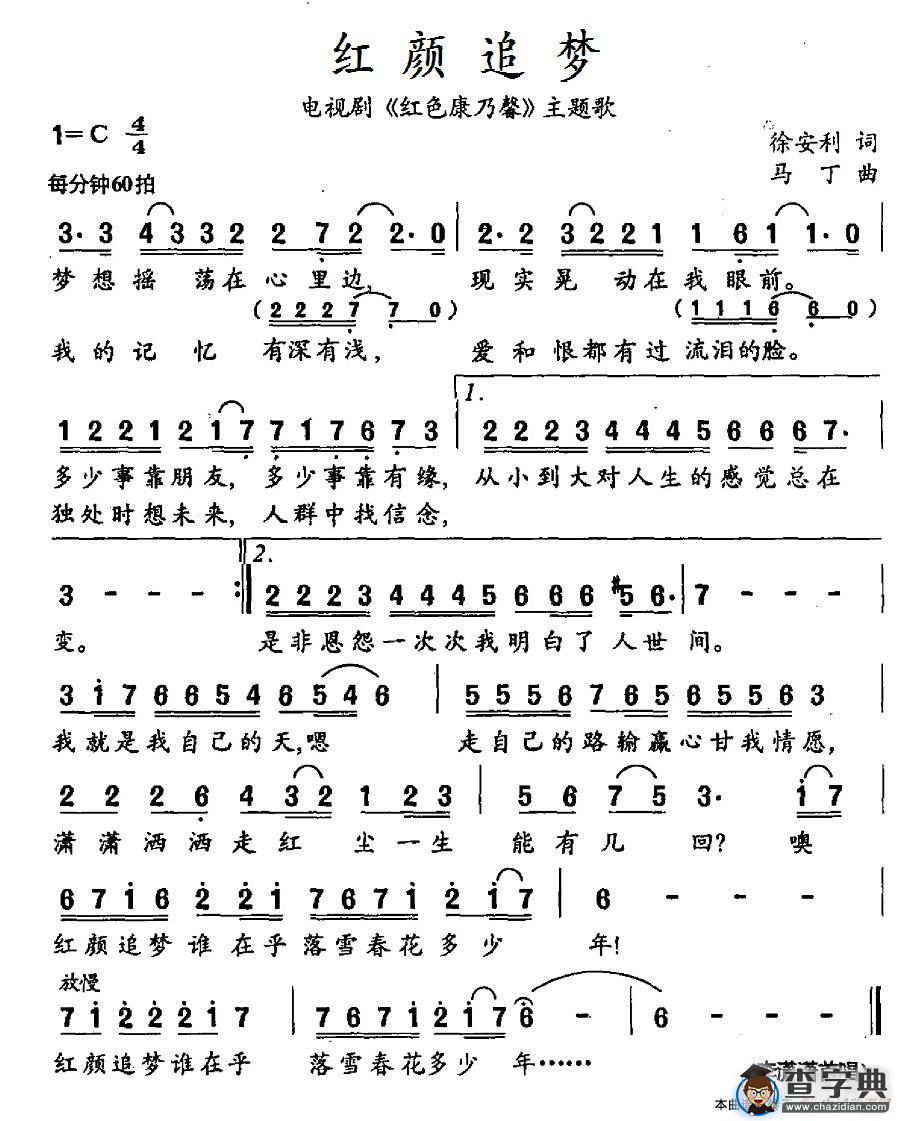 红颜追梦
电视剧《红色康乃馨》主题歌
1=C 4/4
徐安利 词
每分钟60拍
马丁 曲
3·3 4332 2 72 2·0 | 2·2 3221 1 61 1·0 |
梦想摇 荡在心里边, 现实晃 动在我眼前。
(2227 7 0) (1116 6 0)
我的记忆 有深有浅, 爱和恨都有过流泪的脸。
1.
1221 217 7176 73 2223 4445 666 67·
多少事靠朋友, 多少事靠有缘, 从小到大对人生的感觉总在
独处时想未来, 人群中找信念,
2.
3 - - - :‖ 2223 4445 666 #56· | 7 - - - |
变。 是非恩怨一次次我明白了人世间。
3 i7 6654 6546 | 5556 765 6556 3 |
我就是我自己的天,嗯 走自己的路输赢心甘我情愿,
2 2 2 6 4 32 1 23 | 5 6 7 5 3· i7 |
潇潇洒洒走红 尘一生 能有几 回? 噢
67i6 2 2i 767i 2 i7 | 6 - - - |
红颜追梦谁在乎落雪春花多少 年!
放慢
7i 222i7 | 767i 2i7 6 - | 6 - - ‖
红颜追梦谁在乎 落雪春花多少 年……
本曲谱
查字典
www.chazidian.com